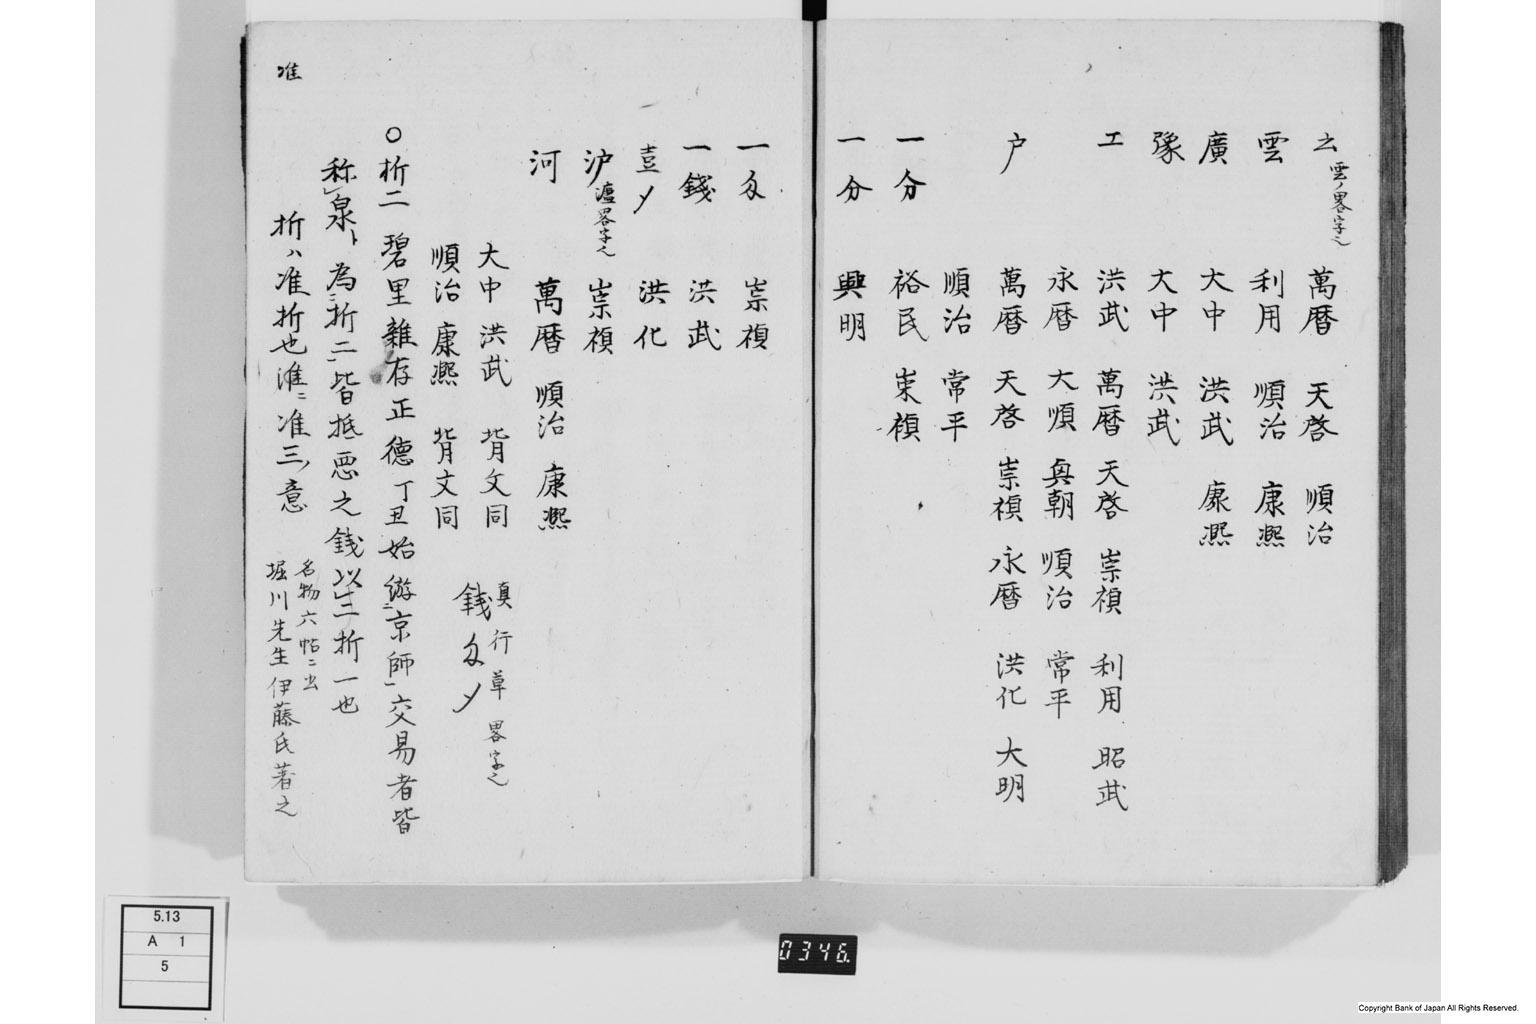 云 雲ノ畧字也 萬暦 天啓 順治
雲 利用 順治 康熙
廣 大中 洪武 康熙
豫 大中 洪武
工 洪武 萬暦 天啓 崇禎 利用 昭武
永暦 大順 興朝 順治 常平
户 萬暦 天啓 崇禎 永暦 洪化 大明
順治 常平
一分 裕民 崇禎
一分 興明
一 崇禎
一錢 洪武
壹 洪化
沪 瀘畧字也 崇禎
河 萬暦 順治 康熙
大中 洪武 背文同
順治 康熙 背文同
真 行 草 畧字也
錢
○折二 碧里雜存正德丁丑始遊ニ京師一交易者皆
称泉、為折二皆抵悪之錢以二折一也
折ハ准折也准ニ准三ノ意
名物六帖ニ出
堀川先生伊藤氏著之
准
5.13
A 1
5
0346.
Copyright Bank of Japan All Rights Reserved.